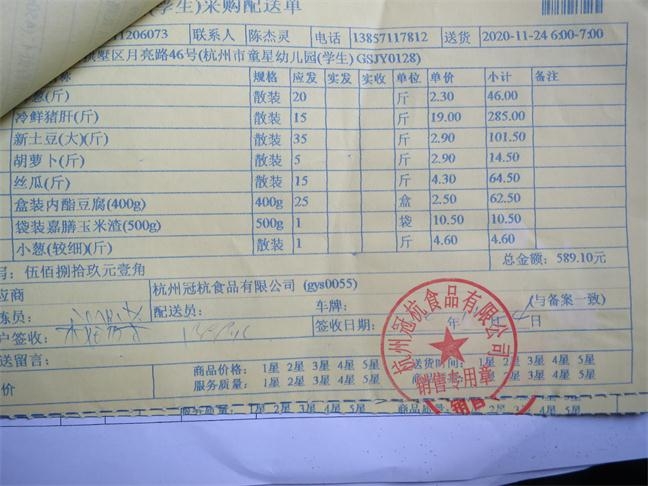 学生)采购配送单
11206073 联系人 陈杰灵 电话 13857117812 送货 2020-11-24 6:00-7:00
墅区月亮路46号(杭州市童星幼儿园(学生) GSJY0128)
名称 规格 应发 实发 实收 单位 单价 小计 备注
葱(斤) 散装 20 斤 2.30 46.00
冷鲜猪肝(斤) 散装 15 斤 19.00 285.00
新土豆(大)(斤) 散装 35 斤 2.90 101.50
胡萝卜(斤) 散装 5 斤 2.90 14.50
丝瓜(斤) 散装 15 斤 4.30 64.50
盒装内酯豆腐(400g) 400g 25 盒 2.50 62.50
袋装嘉膳玉米渣(500g) 500g 1 袋 10.50 10.50
小葱(较细)(斤) 散装 1 斤 4.60 4.60
总金额: 589.10元
写: 伍佰捌拾玖元壹角
应商 杭州冠杭食品有限公司 (gys0055)
拣员: 配送员: 车牌: (与备案一致)
户签收: 签收日期: 年 日
送留言:
商品价格: 1星 2星 3星 4星 5星 送货时间: 1星 2星 3星 4星 5星
价 服务质量: 1星 2星 3星 4星 5星 商品质量: 1星 2星 3星 4星 5星
杭州冠杭食品有限公司
销售专用章
服务质量: 1星 2星 3星 4星 5星 商品质量: 1星 2星 3星 4星 5星
销售